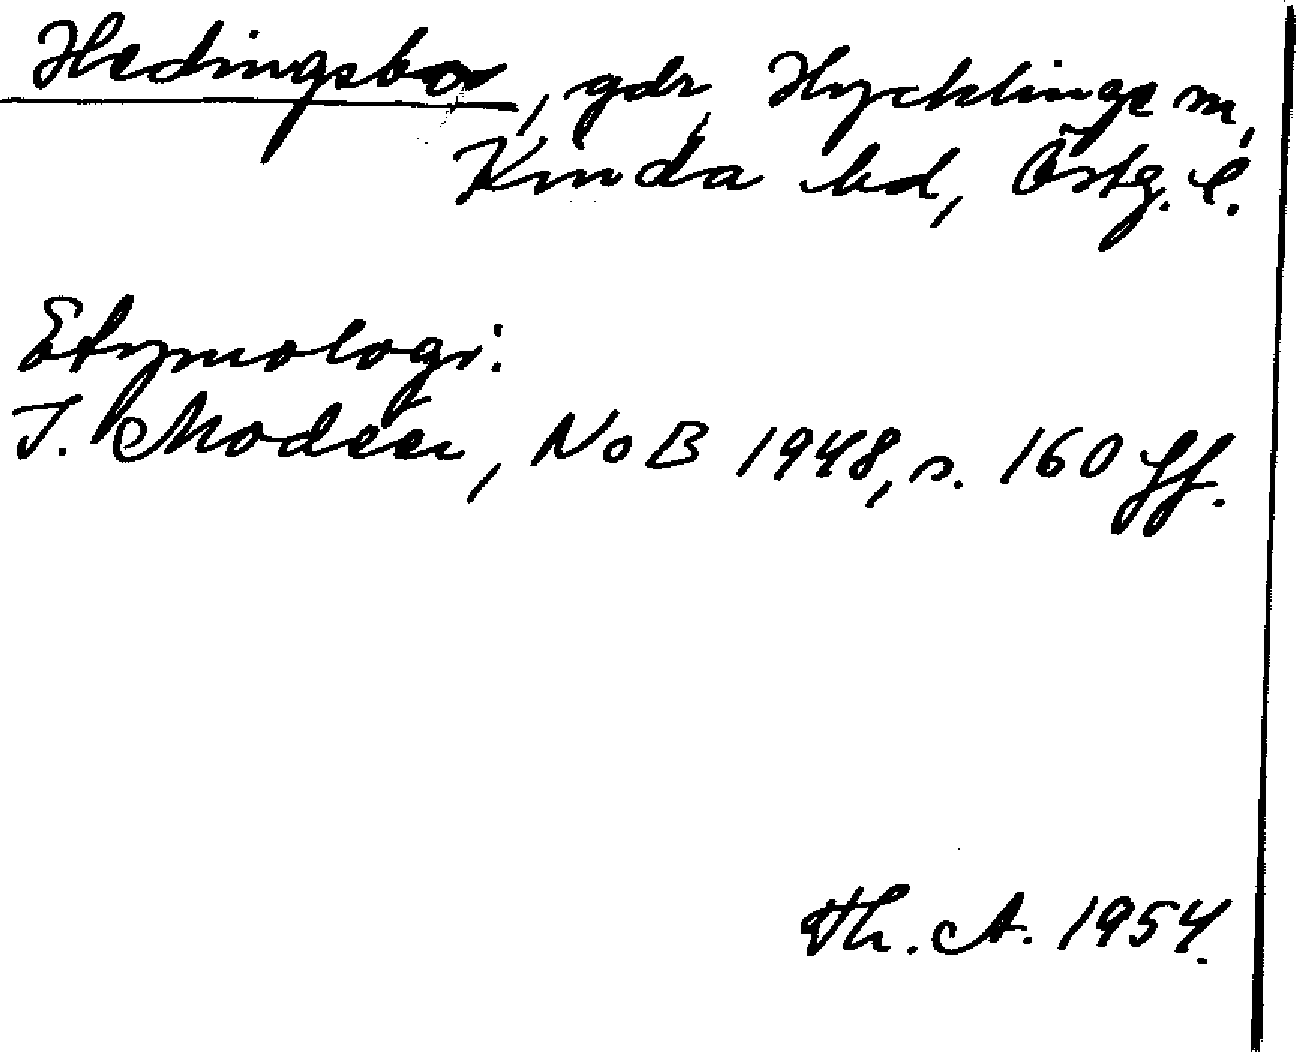 Hedingsbo, gdr, Hycklinge sn,
Kinda hd, Östg. l.
Etymologi:
I. Modéer, NoB 1948, s. 160 ff.
Th. A. 1954.